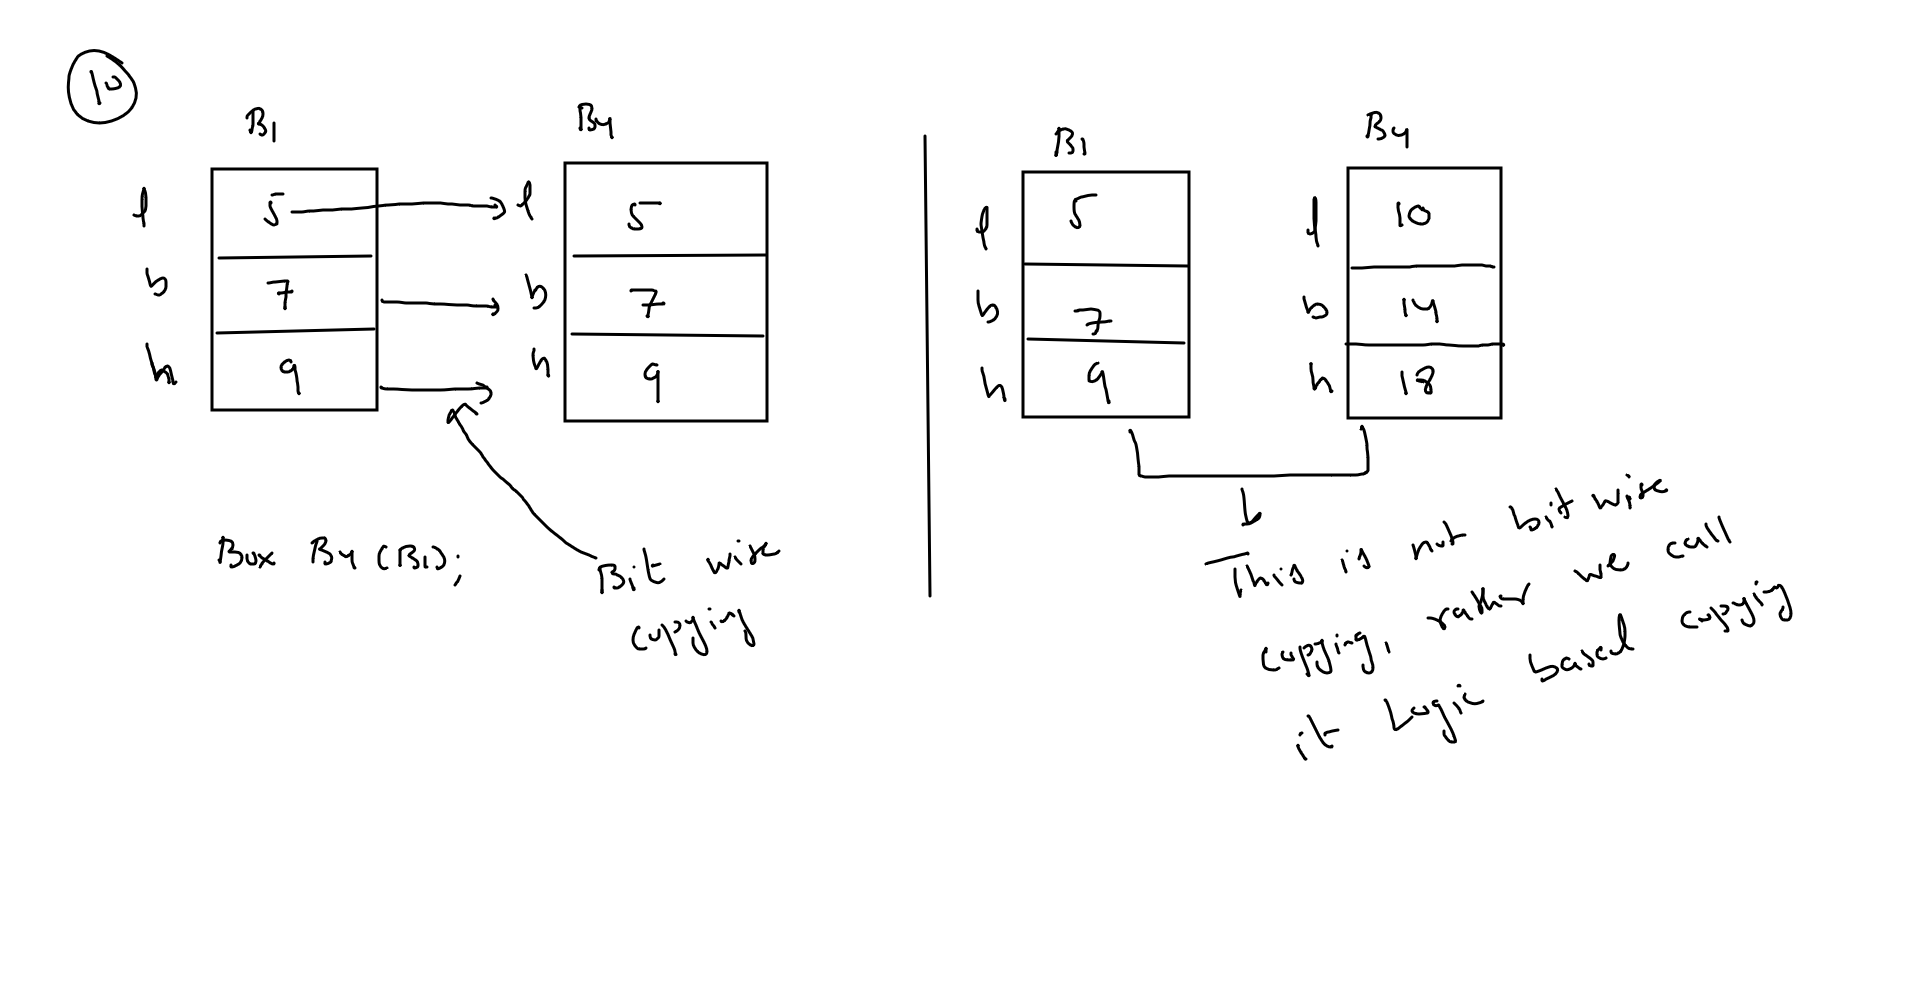 10
B1 B4
l 5 l 5
b 7 b 7
h 9 h 9
Box B4 (B1);
Bit wise
copying
B1 B4
l 5 l 10
b 7 b 14
h 9 h 18
This is not bit wise
copying, rather we call
it Logic based copying